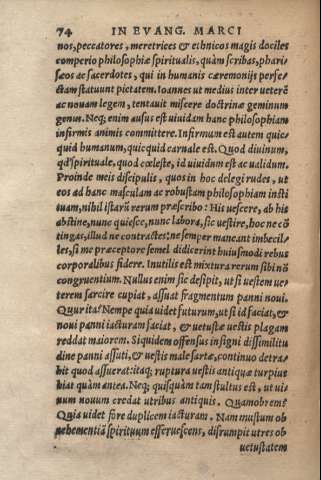 74 IN EVANG. MARCI
nos, peccatores, meretrices & ethnicos magis dociles
comperio philosophiæ spiritualis, quàm scribas, phari
sæos ac sacerdotes, qui in humanis cæremonijs perfe-
ctam statuunt pietatem. Ioannes ut medius inter veterē
ac nouam legem, tentauit miscere doctrinæ geminum
genus. Neq; enim ausus est uiuidam hanc philosophiam
infirmis animis committere. Infirmum est autem quic-
quid humanum, quicquid carnale est. Quod diuinum,
qđ spirituale, quod cœleste, id uiuidum est ac ualidum.
Proinde meis discipulis, quos in hoc delegi rudes, ut
eos ad hanc masculam ac robustam philosophiam insti
tuam, nihil istarū rerum præscribo: His uescere, ab his
abstine, nunc quiesce, nunc labora, sic uestire, hoc ne cō
tingas, illud ne contractes: ne semper maneant imbecil-
les, si me præceptore semel didicerint huiusmodi rebus
corporalibus fidere. Inutilis est mixtura rerum sibi nō
congruentium. Nullus enim sic desipit, ut si uestem ue-
terem sarcire cupiat, assuat fragmentum panni noui.
Quur ita? Nempe quia uidet futurum, ut si id faciat, &
noui panni iacturam faciat, & uetustæ uestis plagam
reddat maiorem. Siquidem offensus insigni dissimilitu
dine panni assuti, & uestis male sartæ, continuo detra-
hit quod assuerat: itaq; ruptura uestis antiquæ turpius
hiat quàm antea. Neq; quisquàm tam stultus est, ut ui-
num nouum credat utribus antiquis. Quamobrem?
Quia uidet fore duplicem iacturam. Nam mustum ob
uehementiā spirituum efferuescens, disrumpit utres ob
uetustatem